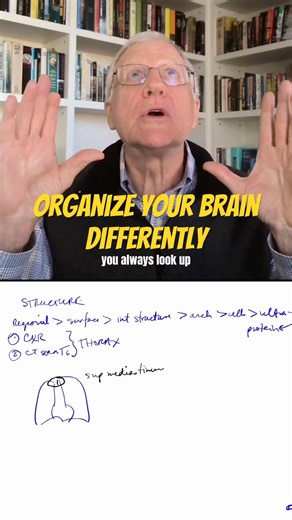 ORGANIZE YOUR BRAIN
DIFFERENTLY
you always look up
STRUCTURE
Regional > surface > int structure > > cell > ultra-
protein
① CXR
② CT
THORAX
sup mediastinum